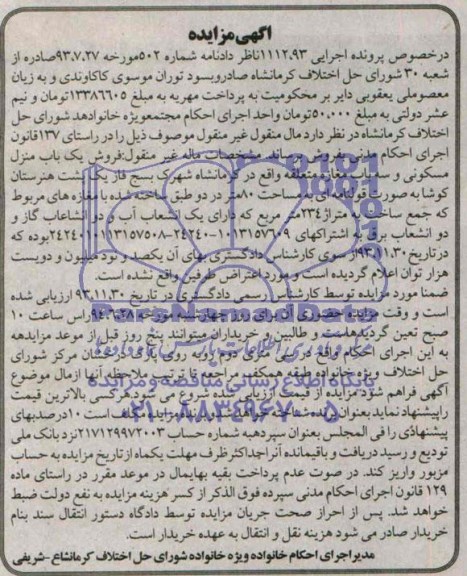 آگهی مزایده
درخصوص پرونده اجرایی ۱۱۱۲،۹۳ناظر دادنامه شماره ۵۰۲مورخه ۹۳،۷،۲۷صادره از
شعبه ۳۰ شورای حل اختلاف کرمانشاه صادروبسود توران موسوی کاکاوندی و به زیان
معصوملی یعقوبی دایر بر محکومیت به پرداخت مهریه به مبلغ ۱۳۳۸۶۶۰۵تومان و نیم
عشر دولتی به مبلغ ۵۰،۰۰۰تومان واحد اجرای احکام مجتمع ویژه خانواده شورای حل
اختلاف کرمانشاه در نظر دارد مال منقول غیر منقول موصوف ذیل را در راستای ۱۳۷قانون
اجرای احکام مدنی بفروش برساند. مشخصات ماله غیر منقول:فروش یک باب منزل
مسکونی و سه باب مغازه متعلقه واقع در کرمانشاه شهرک بسیج فاز یک پشت هنرستان
کوشا به صورت قولنامه ای به مساحت ۸۰متر در دو طبق ساخته شده با مغازه های مربوط
که جمع ساخت به متراژ ۲۳۴متر مربع که دارای یک انشعاب آب و دو انشاعاب گاز و
دو انشعاب برق به اشتراکهای ۱۰۱۳۱۵۷۶۰۹-۲۴۲۴۰ ۲۴۲۴۰۱۰۱۱۳۱۵۷۵۰۸بوده که
درتاریخ ۹۳،۱۱،۳۰از سوی کارشناس دادگستری بهای آن یکصد و نود میلیون و دویست
هزار توان اعلام گردیده است و مورد اعتراض طرفین واقع نشده است.
ضمنا مورد مزایده توسط کارشناس رسمی دادگستری در تاریخ ۹۳،۱۱،۳۰ ارزیابی شده
است و وقت مزایده حضوری آن برای روز چهارشنبه مورخه ۹۴،۲،۳۰راس ساعت ۱۰
صبح تعین گردیده است و طالبین و خریداران میتوانند پنج روز قبل از موعد مزایده
به این اجرای احکام واقع در سی متری دوم روبه روی پارک مرکز شورای
حل اختلاف ویژه خانواده طبقه همکف مراجعه تا ترتیب ملاحظه آنها از مال موضوع
آگهی فراهم شود.مزایده از قیمت ارزیابی شده شروع می شود.هرکسی بالاترین قیمت
را پیشنهاد نماید بعنوان برنده شناخته خواهد شد.برنده مزایده مکلف است ۱۰درصدبهای
پیشنهادی را فی المجلس بعنوان سپرده به شماره حساب ۲۱۷۱۲۹۹۷۲۰۰۳نزد بانک ملی
تودیع و رسید دریافت و باقیمانده آنراحداکثر ظرف مهلت یکماه از تاریخ مزایده به حساب
مزبور واریز کند. در صورت عدم پرداخت بقیه بهایمال در موعد مقرر در راستای ماده
۱۲۹ قانون اجرای احکام مدنی سپرده فوق الذکر از کسر هزینه مزایده به نفع دولت ضبط
خواهد شد. پس از احراز صحت جریان مزایده توسط دادگاه دستور انتقال سند بنام
خریدار صادر می شود هزینه نقل و انتقال به عهده خریدار است.
مدیر اجرای احکام خانواده ویژه خانواده شورای حل اختلاف کرمانشاع-شریفی
پایگاه اطلاع رسانی مناقصه و مزایده
۰۲۱-۸۸۳۴۹۶۷۰-۵